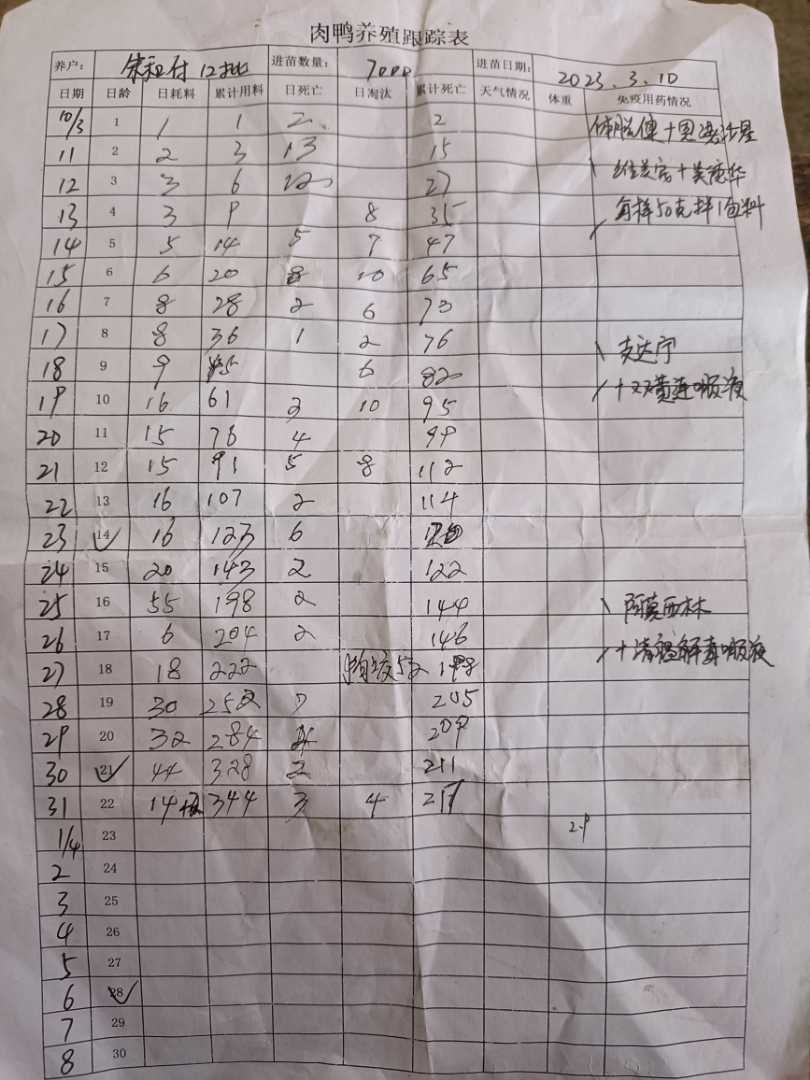 肉鸭养殖跟踪表
养户: 付 12批 进苗数量: 7000 进苗日期: 2023.3.10
日期 日龄 日耗料 累计用料 日死亡 日淘汰 累计死亡 天气情况 体重 免疫用药情况
10/3 1 1 1 2 2
11 2 2 3 13 15
12 3 3 6 12 27
13 4 3 9 8 35 每样50克拌1包料
14 5 5 14 5 7 47
15 6 6 20 8 10 65
16 7 8 28 2 6 73
17 8 8 36 1 2 76
18 9 9 45 6 82
19 10 16 61 3 10 95 +双黄连口服液
20 11 15 76 4 99
21 12 15 91 5 8 112
22 13 16 107 2 114
23 14 16 123 6 120
24 15 20 143 2 122
25 16 55 198 2 144 阿莫西林
26 17 6 204 2 146 +清瘟解毒口服液
27 18 18 222 52 198
28 19 30 252 7 205
29 20 32 284 4 209
30 21 44 328 2 211
31 22 14 344 3 4 217
1/4 23 2.9
2 24
3 25
4 26
5 27
6 28
7 29
8 30